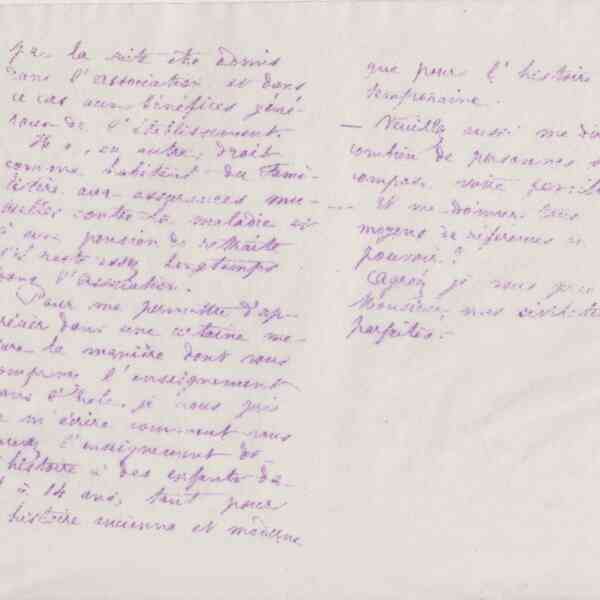 par la suite être admis
dans l'association et dans
ce cas aux bénéfices géné-
raux de l'établissement.
Il a, en outre, droit
comme habitant du Fami-
listère aux assurances mu-
tuelles contre la maladie et
à une pension de retraite
s'il reste assez longtemps
dans l'association.
Pour me permettre d'ap-
précier dans une certaine me-
sure la manière dont vous
comprenez l'enseignement
dans l'histoire, je vous prie
de m'écrire comment vous
l'enseignement de
l'histoire à des enfants de
à 14 ans, tant pour
l'histoire ancienne et moderne
que pour l'histoire
temporaine.
— Veuillez aussi me di
combien de personnes se
compose votre famille
— Et me donner tous
moyens de références en
pouvoir?
Agréez je vous prie
Monsieur, mes civilités
parfaites.